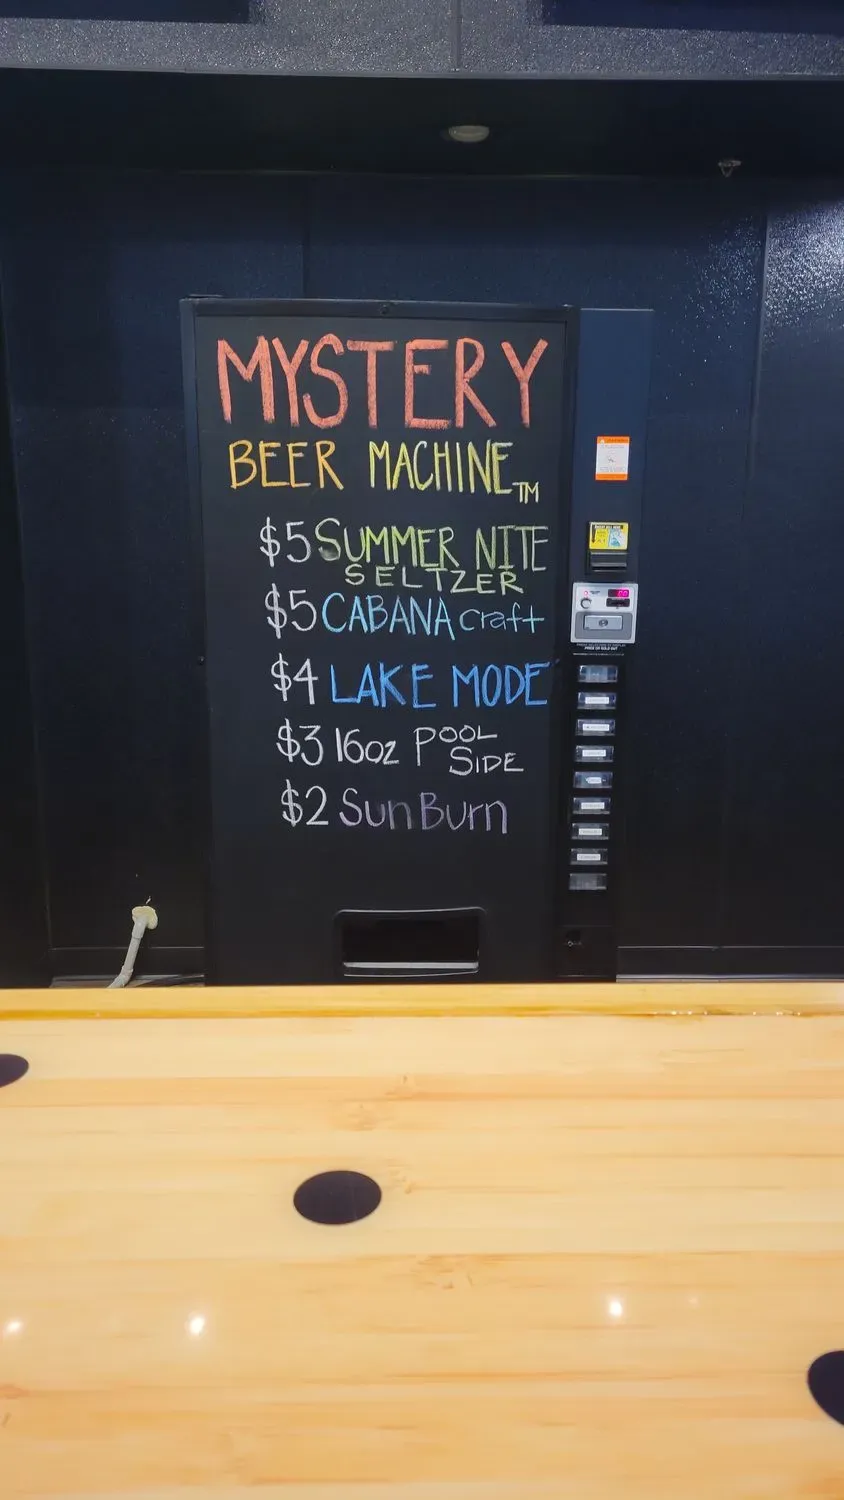 MYSTERY
BEER MACHINE TM
$5 SUMMER NITE
SELTZER
$5 CABANA craft
$4 LAKE MODE
$3 16oz POOL
SIDE
$2 SunBurn